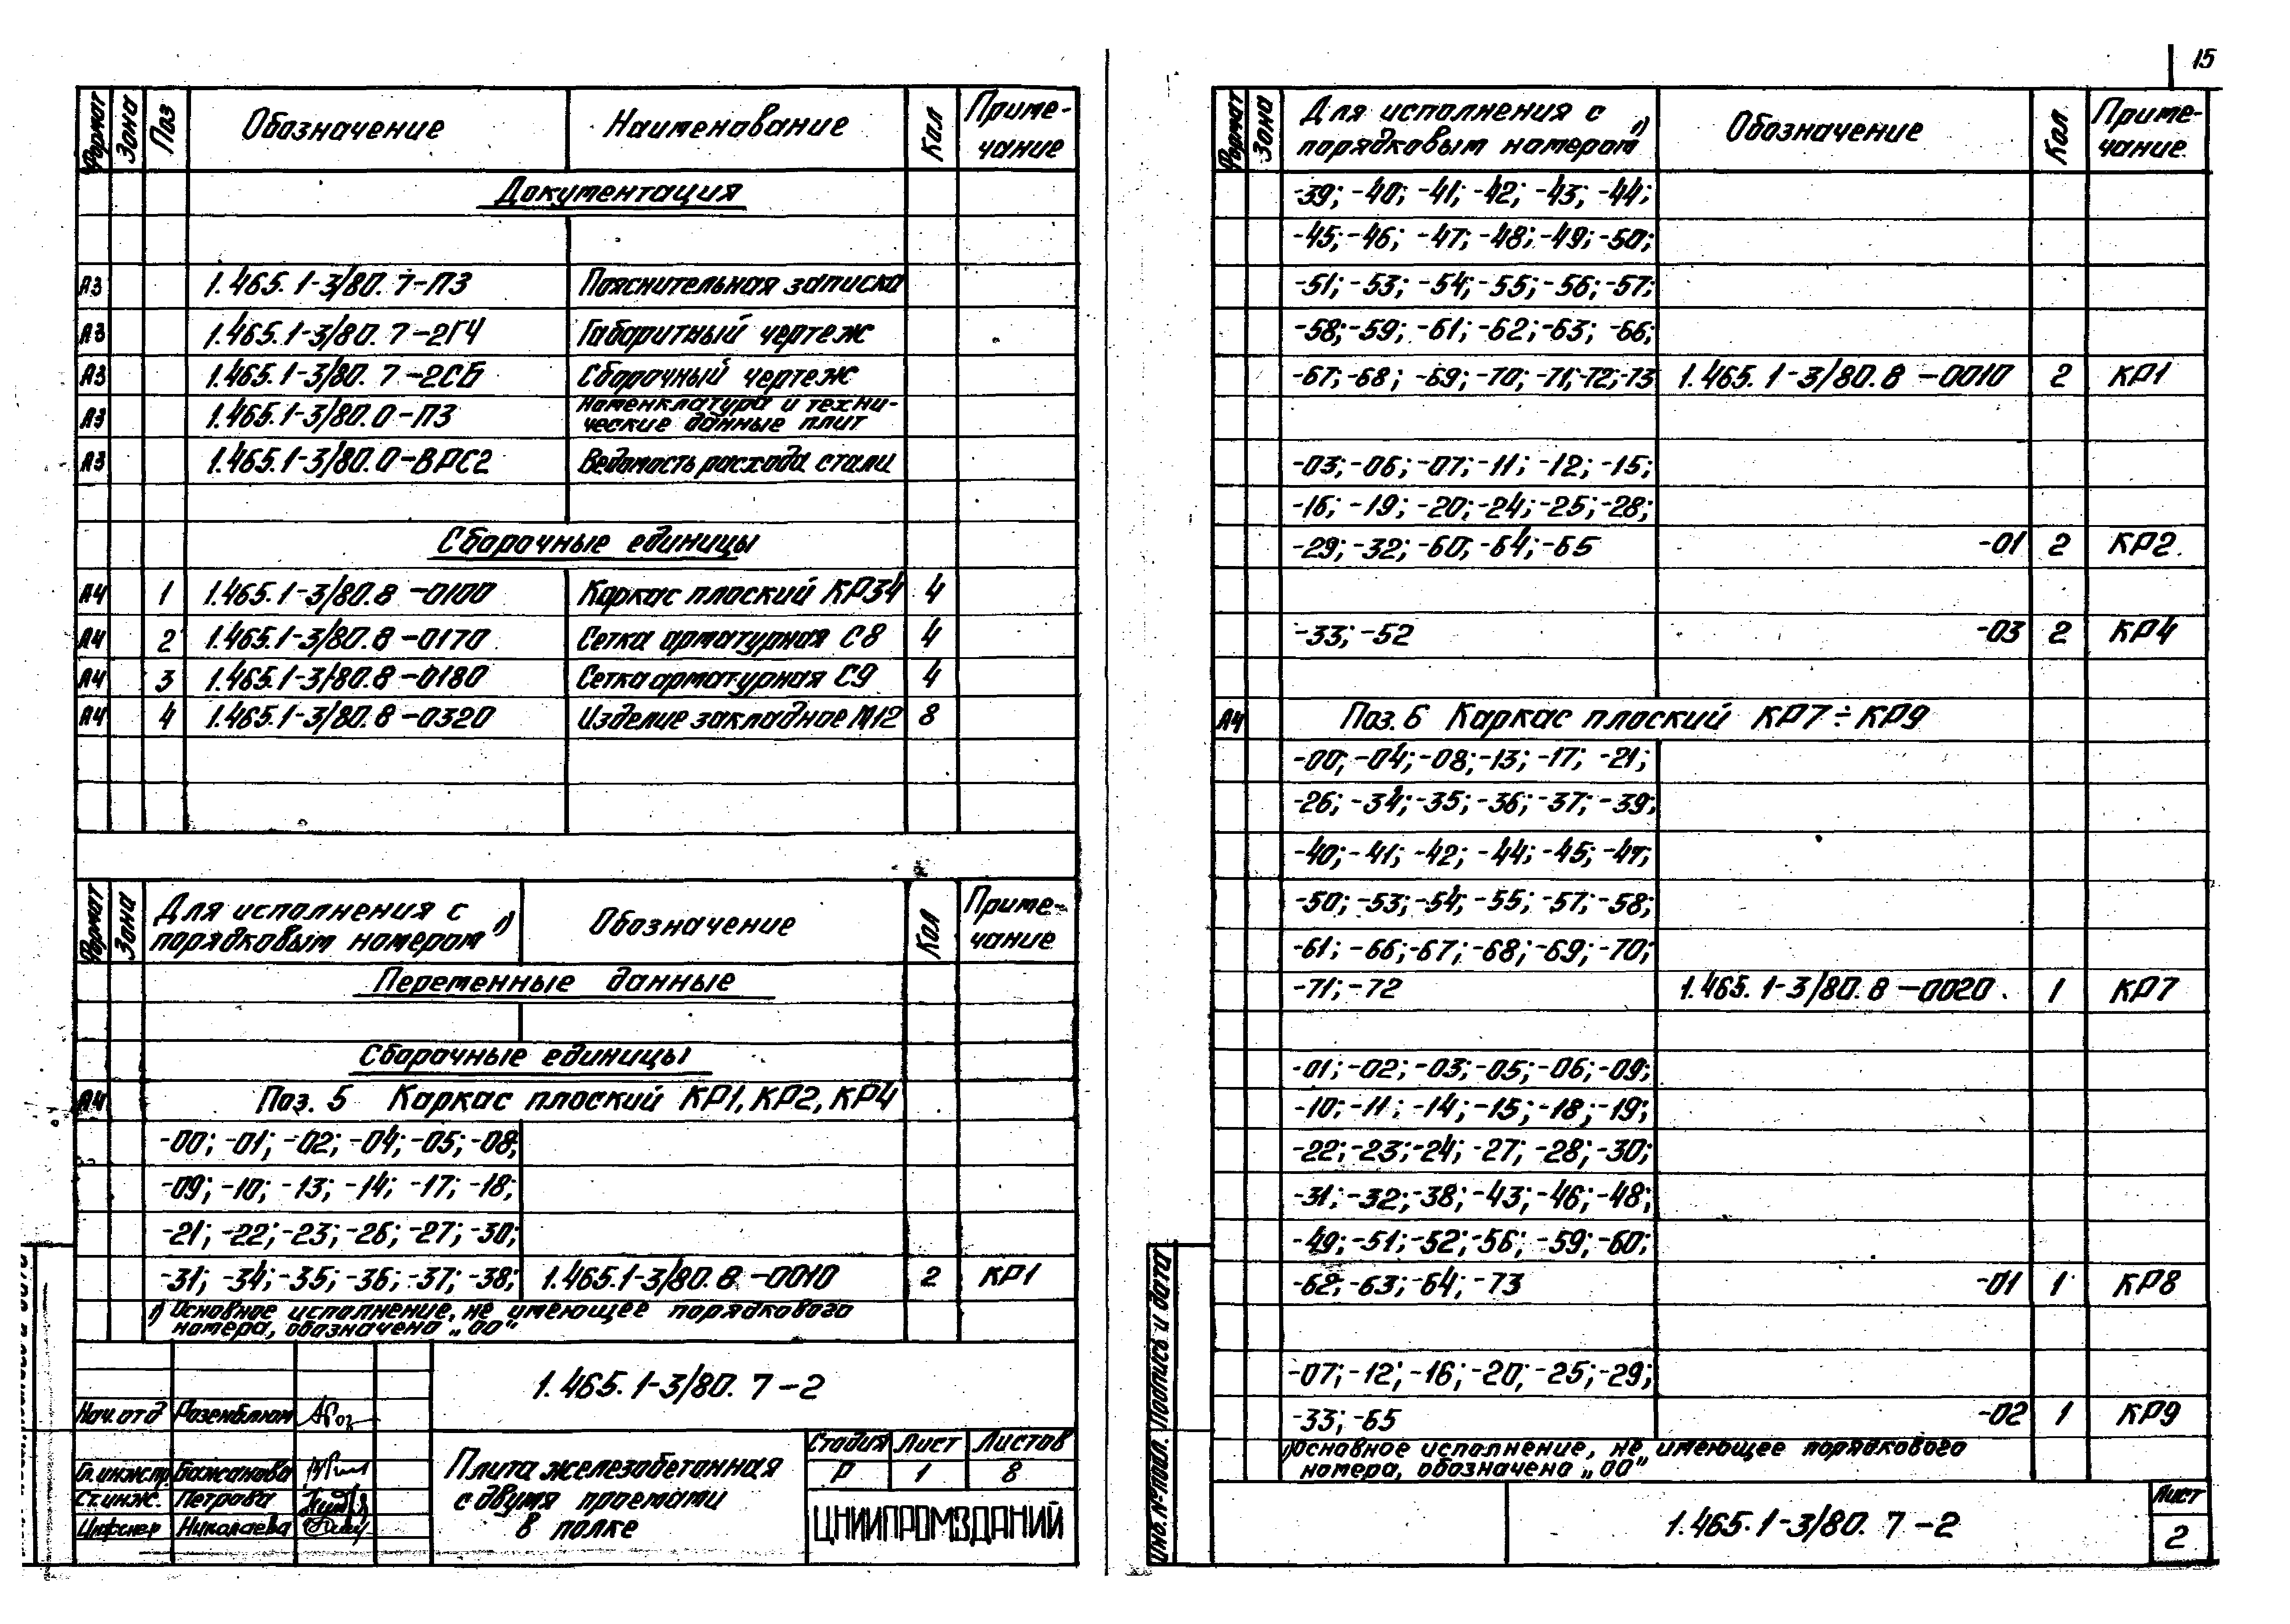 15
Формат Зона Поз Обозначение Наименование Кол Приме-
чание
Документация
А3 1.465.1-3/80.7-ПЗ Пояснительная записка
А3 1.465.1-3/80.7-2ГЧ Габаритный чертеж
А3 1.465.1-3/80.7-2СБ Сборочный чертеж
А3 1.465.1-3/80.0-ПЗ Номенклатура и техни-
ческие данные плит
А3 1.465.1-3/80.0-ВРС2 Ведомость расхода стали
Сборочные единицы
А4 1 1.465.1-3/80.8-0100 Каркас плоский КР34 4
А4 2 1.465.1-3/80.8-0170 Сетка арматурная С8 4
А4 3 1.465.1-3/80.8-0180 Сетка арматурная С9 4
А4 4 1.465.1-3/80.8-0320 Изделие закладное М12 8
Формат Зона Для исполнения с
порядковым номером 1) Обозначение Кол Приме-
чание
Переменные данные
Сборочные единицы
А4 Поз. 5 Каркас плоский КР1, КР2, КР4
-00; -01; -02; -04; -05; -08;
-09; -10; -13; -14; -17; -18;
-21; -22; -23; -26; -27; -30;
-31; -34; -35; -36; -37; -38; 1.465.1-3/80.8-0010 2 КР1
1) Основное исполнение, не имеющее порядкового
номера, обозначено „00"
1.465.1-3/80.7-2
Нач.отд Розенблюм
Гл.инж.пр. Бажанова
Ст.инж. Петрова
Николаева
Плита железобетонная
с двумя проемами
в полке
Стадия Лист Листов
Р 1 8
ЦНИИПРОМЗДАНИЙ
Формат Зона Для исполнения с
порядковым номером 1) Обозначение Кол Приме-
чание
-39; -40; -41; -42; -43; -44;
-45; -46; -47; -48; -49; -50;
-51; -53; -54; -55; -56; -57;
-58; -59; -61; -62; -63; -66;
-67; -68; -69; -70; -71; -72; -73 1.465.1-3/80.8-0010 2 КР1
-03; -06; -07; -11; -12; -15;
-16; -19; -20; -24; -25; -28;
-29; -32; -60; -64; -65 -01 2 КР2
-33; -52 -03 2 КР4
А4 Поз. 6 Каркас плоский КР7÷КР9
-00; -04; -08; -13; -17; -21;
-26; -34; -35; -36; -37; -39;
-40; -41; -42; -44; -45; -47;
-50; -53; -54; -55; -57; -58;
-61; -66; -67; -68; -69; -70;
-71; -72 1.465.1-3/80.8-0020 1 КР7
-01; -02; -03; -05; -06; -09;
-10; -11; -14; -15; -18; -19;
-22; -23; -24; -27; -28; -30;
-31; -32; -38; -43; -46; -48;
-49; -51; -52; -56; -59; -60;
-62; -63; -64; -73 -01 1 КР8
-07; -12; -16; -20; -25; -29;
-33; -65 -02 1 КР9
1) Основное исполнение, не имеющее порядкового
номера, обозначено „00"
Инв.№ подл. Подпись и дата
1.465.1-3/80.7-2
Лист
2